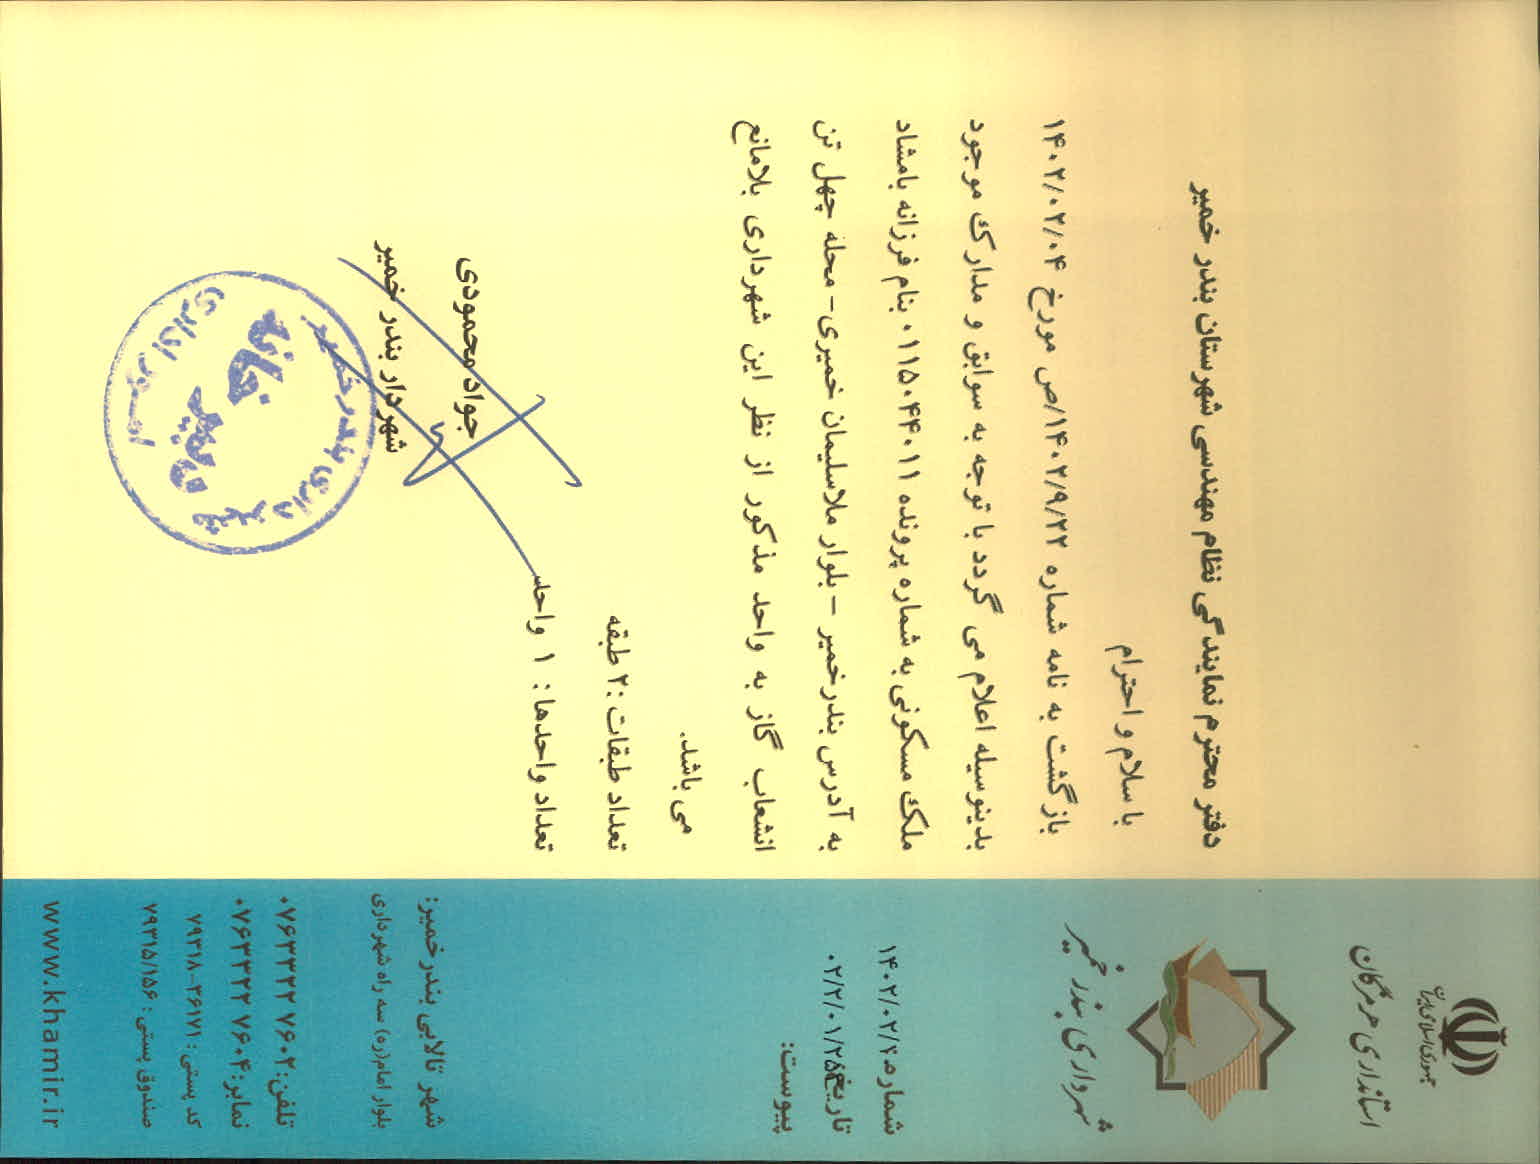 جمهوری اسلامی ایران
استانداری هرمزگان
شهرداری بندر خمیر
شماره:
۱۴۰۲/۰۲/۰۴
تاریخ:
پیوست:
دفتر محترم نمایندگی نظام مهندسی شهرستان بندر خمیر
با سلام و احترام
بازگشت به نامه شماره ۱۴۰۲/۹/۲۲/ص مورخ ۱۴۰۲/۰۲/۰۴
بدینوسیله اعلام می گردد با توجه به سوابق و مدارک موجود
ملک مسکونی به شماره پرونده ۰۱۱۵۰۴۴۰۱۱ بنام فرزانه بامشاد
به آدرس بندرخمیر – بلوار ملاسلیمان خمیری – محله چهل تن
انشعاب گاز به واحد مذکور از نظر این شهرداری بلامانع
می باشد.
تعداد طبقات : ۲ طبقه
تعداد واحدها : ۱ واحد
جواد محمودی
شهردار بندر خمیر
شهرداری بندر خمیر
دبیرخانه
امور اداری
شهر تالابی بندرخمیر:
بلوار امام(ره) سه راه شهرداری
تلفن: ۰۷۶۳۳۲۲۷۶۰۲
نمابر: ۰۷۶۳۳۲۲۷۶۰۴
کد پستی : ۳۶۱۷۱-۷۹۳۱۸
صندوق پستی : ۷۹۳۱۵/۱۵۶
www.khamir.ir